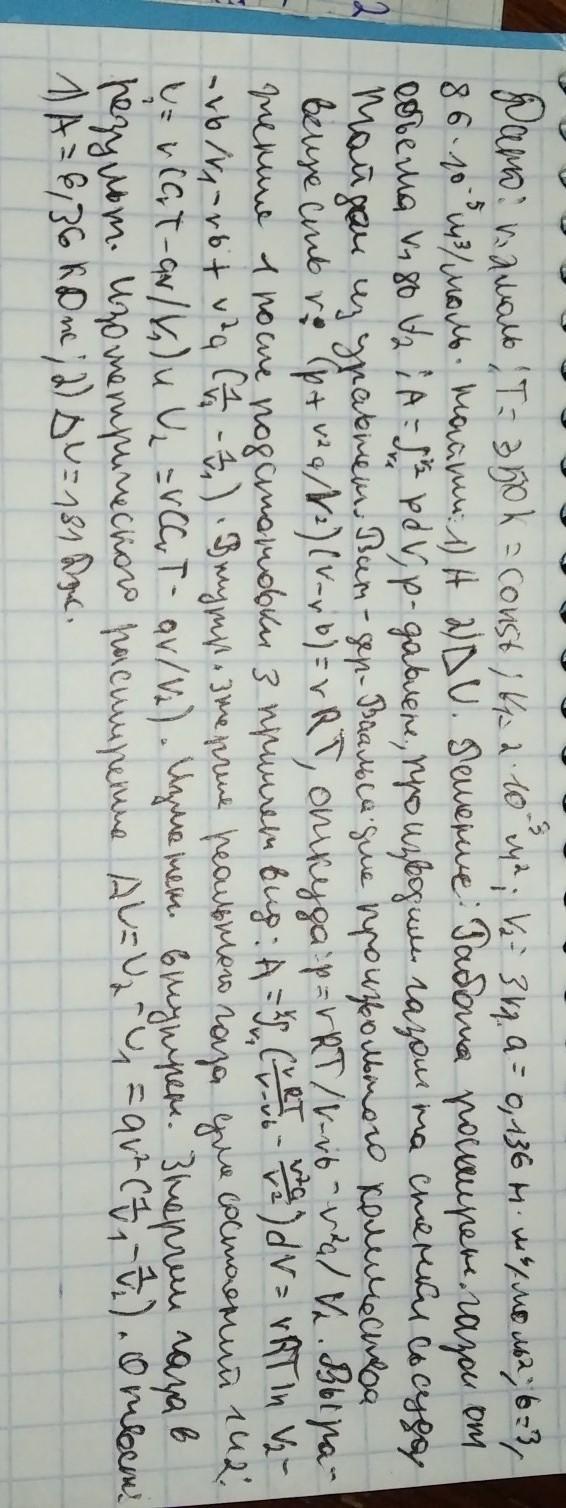 2
Дано: ν=2моль; T= 350K = const; V₁= 2·10⁻³ м²; V₂= 3V₁. a= 0,136 Н·м⁴/моль²; b=3,
86·10⁻⁵ м³/моль. Найти: 1) A 2) ΔU. Решение: Работа расширен. газом от
объема V₁ до V₂; A=∫ᵥ₁ᵛ² pdV, p-давлен, производим. газом на стенки сосуда,
Найдем из уравнен. Ван-дер-Ваальса для произвольного количества
веществ ν: (p+ν²a/V²)(V-νb)=νRT, откуда: p=νRT/V-νb-ν²a/V₂. Выра-
жение 1 после подстановки 3 примет вид: A=∫ᵥ₁ᵛ²(νRT/V-νb - ν²a/V²)dV=νRT ln V₂-
-νb/V₁-νb+ν²a(1/V₂ - 1/V₁). Внутр. энергие реального газа для состояний 1 и 2:
U=ν(CᵥT-aν/V₁) и U₂=ν(CᵥT-aν/V₂). Изменен внутрен. энергии газа в
результ. изотермического расширения ΔU=U₂-U₁=aν²(1/V₁ - 1/V₂). Ответ:
1) A=6,36 кДж; 2) ΔU=181 Дж.